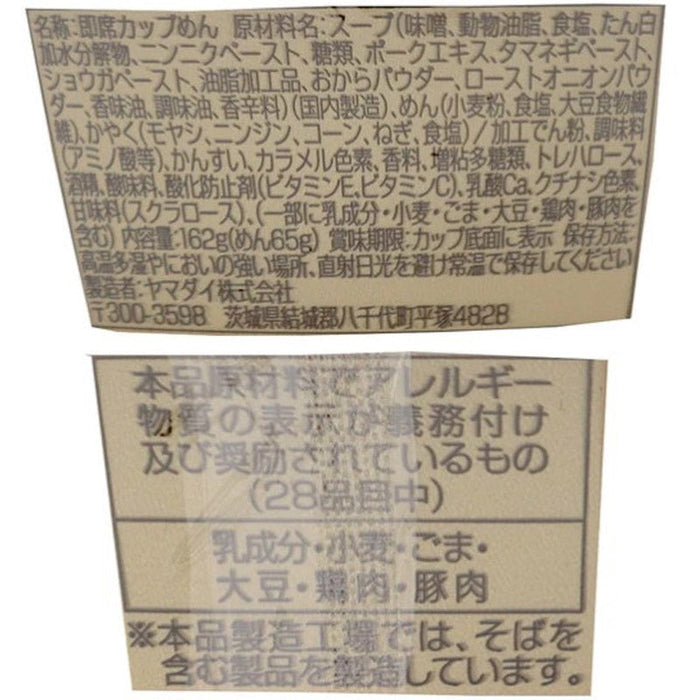 名称:即席カップめん 原材料名:スープ(味噌、動物油脂、食塩、たん白
加水分解物、ニンニクペースト、糖類、ポークエキス、タマネギペースト、
ショウガペースト、油脂加工品、おからパウダー、ローストオニオンパウ
ダー、香味油、調味油、香辛料)(国内製造)、めん(小麦粉、食塩、大豆食物繊
維)、かやく(モヤシ、ニンジン、コーン、ねぎ、食塩)/加工でん粉、調味料
(アミノ酸等)、かんすい、カラメル色素、香料、増粘多糖類、トレハロース、
酒精、酸味料、酸化防止剤(ビタミンE、ビタミンC)、乳酸Ca、クチナシ色素、
甘味料(スクラロース)、(一部に乳成分・小麦・ごま・大豆・鶏肉・豚肉を
含む) 内容量:162g(めん65g) 賞味期限:カップ底面に表示 保存方法:
高温多湿やにおいの強い場所、直射日光を避け常温で保存してください
製造者:ヤマダイ株式会社
〒300-3598 茨城県結城郡八千代町平塚4828
本品原材料でアレルギー
物質の表示が義務付け
及び奨励されているもの
(28品目中)
乳成分・小麦・ごま・
大豆・鶏肉・豚肉
※本品製造工場では、そばを
含む製品を製造しています。